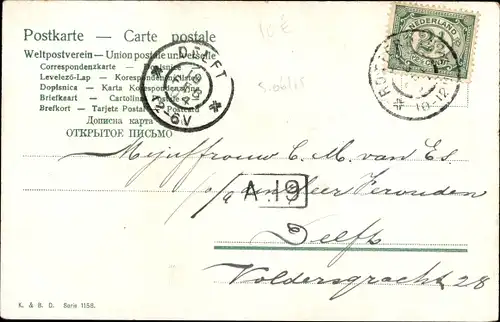 Postkarte - Carte postale
Weltpostverein - Union postale universelle
Correspondenzkarte - Dopisnice
Levelező-Lap - Korespondenzkarte
Dopisnica - Karta Korespondencyjna
Briefkaart - Cartolina Postale
Brefkort - Tarjeta Postal - Postcard
Дописна карта
ОТКРЫТОЕ ПИСЬМО
10€
NEDERLAND
2½
CENT
DELFT
2-6V
10-12
Mejuffrouw C. M. van Es.
A.19
Delft
Voldersgracht 28
K. & B. D. Serie 1158.